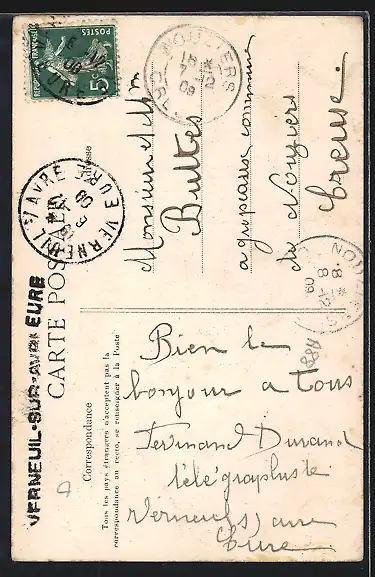 REPUBLIQUE FRANÇAISE
POSTES
5c
VERNEUIL S/ AVRE EURE
NOUZIERS
VERNEUIL-SUR-AVRE EURE
CARTE POSTALE
Correspondance
Adresse
Tous les pays étrangers n'acceptent pas la
correspondance au recto, se renseigner à la Poste
Monsieur et
Bultes
commune
de Nouziers
Creuse.
8-12
09
Bien le
bonjour a tous
Ferdinand Durand
télégraphiste
Verneuil s/ avre
Eure